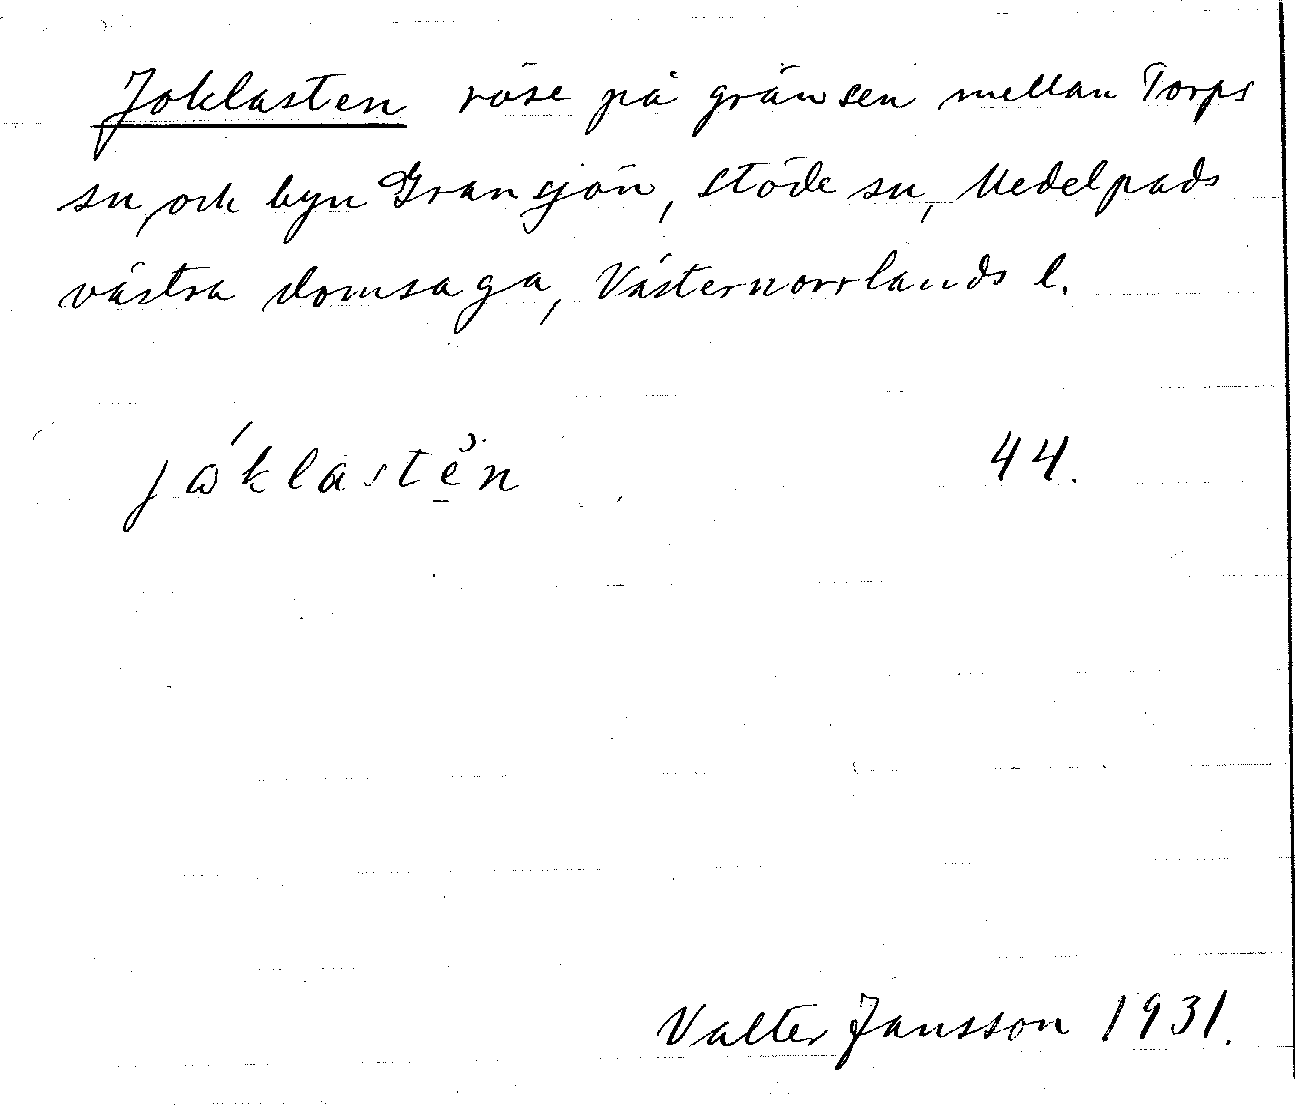 Joklasten röse på gränsen mellan Torps
sn och byn Gransjön, Stöde sn, Medelpads
västra domsaga, Västernorrlands l.
44.
Valter Jansson 1931.